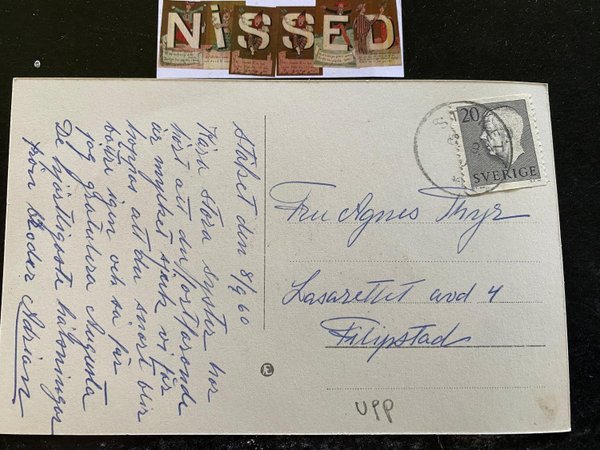 NiSSED
Stabet den 8/9 60
Kära stora syster har
hört att du fortfarande
är mycket sjuk vi får
hoppas att du snart blir
bättre igen och så får
jag gratulera Augusta
De hjärtligaste hälsningar
från Broder Adrian
20
SVERIGE
Fru Agnes Thyr
Lasarettet avd 4
Filipstad
UPP